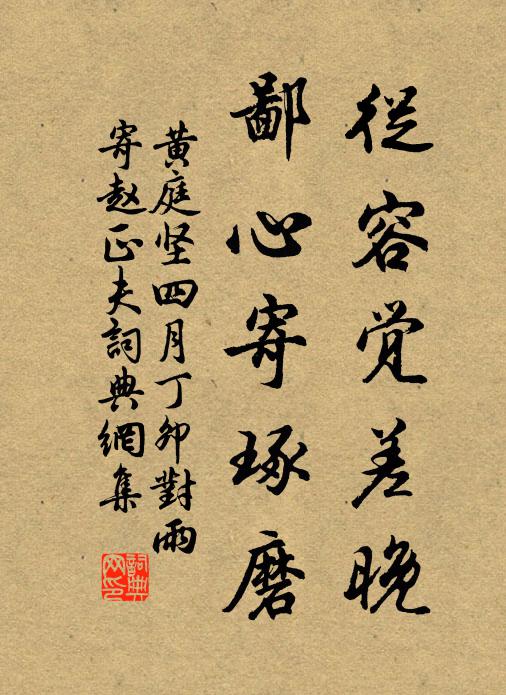 從容觉差晚
鄙心寄琢磨
黄庭坚四月丁卯對雨
寄赵正夫詞典網集
詞典
网印